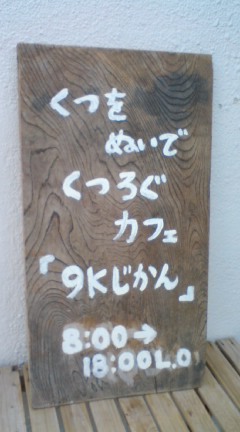 くつを
ぬいで
くつろぐ
カフェ
「9Kじかん」
8:00→
18:00L.O